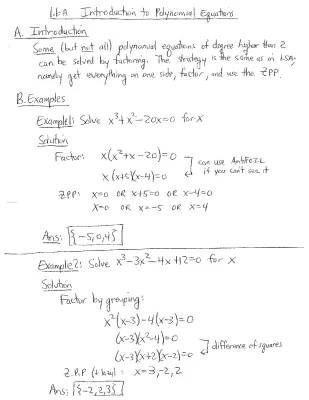 1.6A Introduction to Polynomial Equations
A. Introduction
Some (but not all) polynomial equations of degree higher than 2
can be solved by factoring. The strategy is the same as in 1.5A,
namely get everything on one side, factor, and use the ZPP.
B. Examples
Example 1: Solve x³+x²-20x=0 for x
Solution
Factor: x(x²+x-20)=0
x(x+5)(x-4)=0
can use AntiFOIL
if you can't see it
ZPP: x=0 OR x+5=0 OR x-4=0
x=0 OR x=-5 OR x=4
Ans: {-5,0,4}
Example 2: Solve x³-3x²-4x+12=0 for x
Solution
Factor by grouping:
x²(x-3)-4(x-3)=0
(x-3)(x²-4)=0
(x-3)(x+2)(x-2)=0
difference of squares
Z.P.P x=3,-2,2
Ans: {-2,2,3}